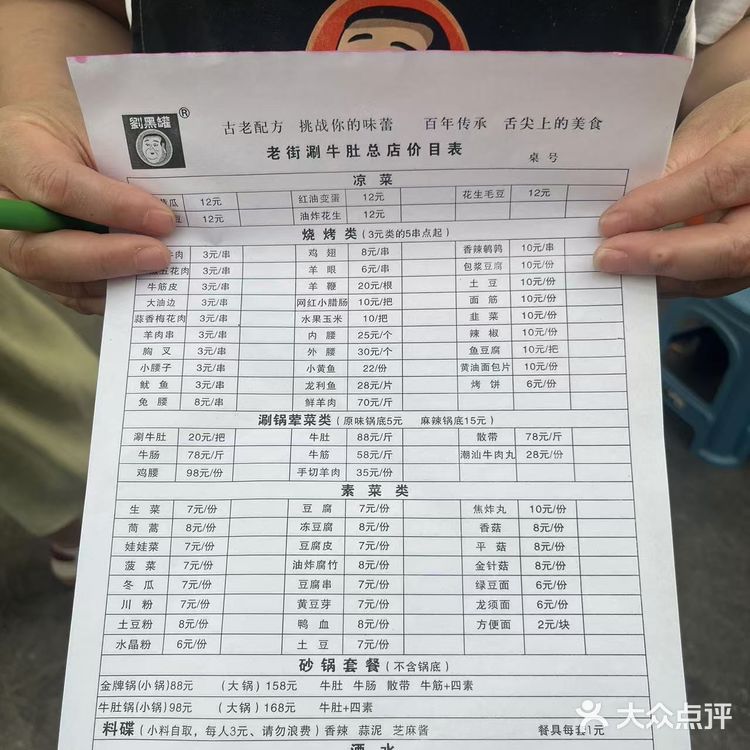 劉黑罐®
古老配方 挑战你的味蕾 百年传承 舌尖上的美食
老街涮牛肚总店价目表 桌号
凉菜
瓜 12元 红油变蛋 12元 花生毛豆 12元
豆 12元 油炸花生 12元
烧烤类(3元类的5串点起)
牛肉 3元/串 鸡翅 8元/串 香辣鹌鹑 10元/串
五花肉 3元/串 羊眼 6元/串 包浆豆腐 10元/份
牛筋皮 3元/串 羊鞭 20元/根 土豆 10元/份
大油边 3元/串 网红小腊肠 10元/把 面筋 10元/份
蒜香梅花肉 3元/串 水果玉米 10/把 韭菜 10元/份
羊肉串 3元/串 内腰 25元/个 辣椒 10元/份
胸叉 3元/串 外腰 30元/个 鱼豆腐 10元/把
小腰子 3元/串 小黄鱼 22/份 黄油面包片 10元/份
鱿鱼 8元/串 龙利鱼 28元/片 烤饼 6元/份
兔腰 8元/串 鲜羊肉 70元/斤
涮锅荤菜类(原味锅底5元 麻辣锅底15元)
涮牛肚 20元/把 牛肚 88元/斤 散带 78元/斤
牛肠 78元/斤 牛筋 58元/斤 潮汕牛肉丸 28元/份
鸡腰 98元/份 手切羊肉 35元/份
素菜类
生菜 7元/份 豆腐 7元/份 焦炸丸 10元/份
茼蒿 8元/份 冻豆腐 8元/份 香菇 8元/份
娃娃菜 7元/份 豆腐皮 7元/份 平菇 8元/份
菠菜 7元/份 油炸腐竹 8元/份 金针菇 8元/份
冬瓜 7元/份 豆腐串 7元/份 绿豆面 6元/份
川粉 7元/份 黄豆芽 7元/份 龙须面 6元/份
土豆粉 8元/份 鸭血 8元/份 方便面 2元/块
水晶粉 6元/份 土豆 7元/份
砂锅套餐(不含锅底)
金牌锅(小锅)88元 (大锅)158元 牛肚 牛肠 散带 牛筋+四素
牛肚锅(小锅)98元 (大锅)168元 牛肚+四素
料碟(小料自取,每人3元、请勿浪费)香辣 蒜泥 芝麻酱 餐具每套1元
酒水
大众点评